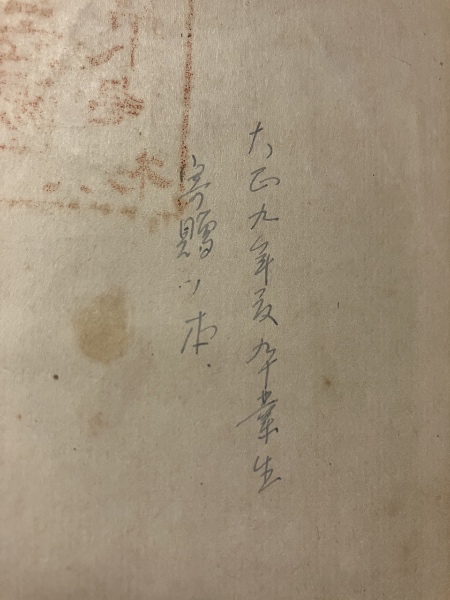 大正九年度卆業生
寄贈ノ本